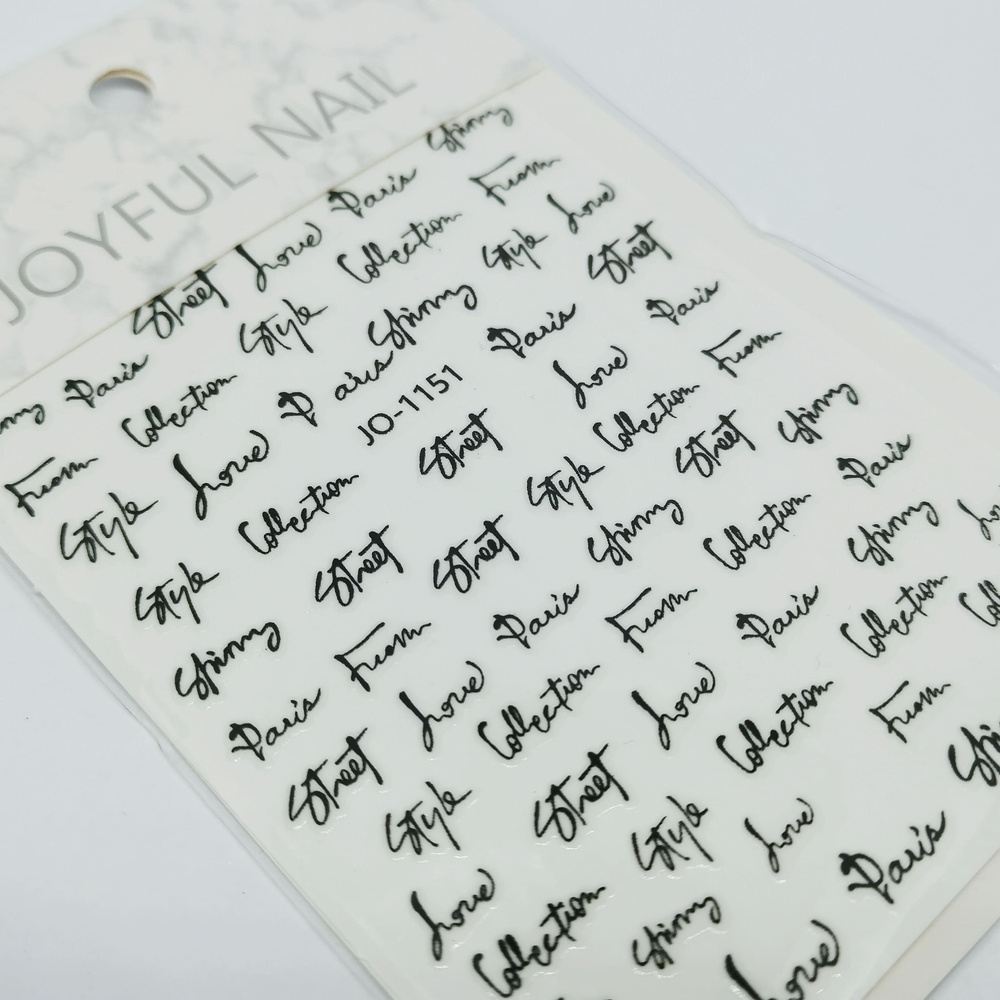 JOYFUL NAIL
Paris Street Love Paris
From Collection Style Collection From
Style Love Paris Style Love
Style Collection JO-1151 Paris Street
Street Street Love Paris
Paris From Street Style Collection From
Street Love Paris Street
Style Collection From Collection Paris
Street Love Paris
Love Style Collection Collection
Collection Love From
Paris
Love